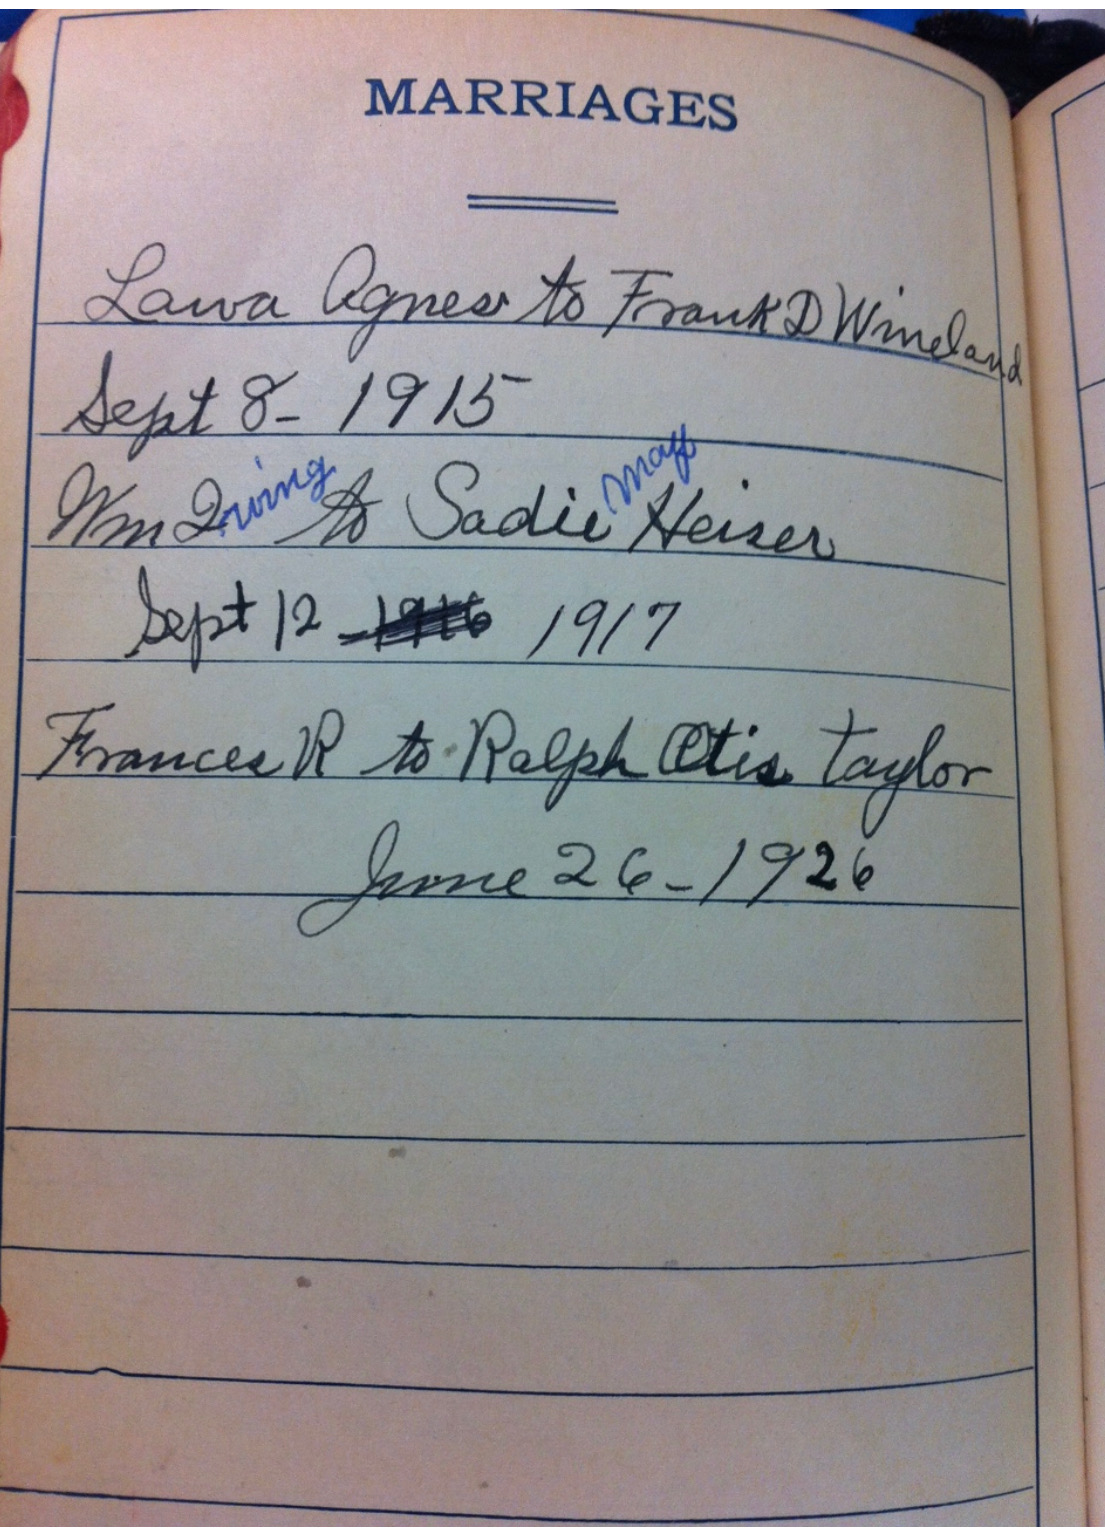 MARRIAGES
Laura Agnes to Frank D Wineland
Sept 8 - 1915
Wm Irving to Sadie May Heiser
Sept 12 - 1916 1917
Frances R to Ralph Otis Taylor
June 26 - 1926